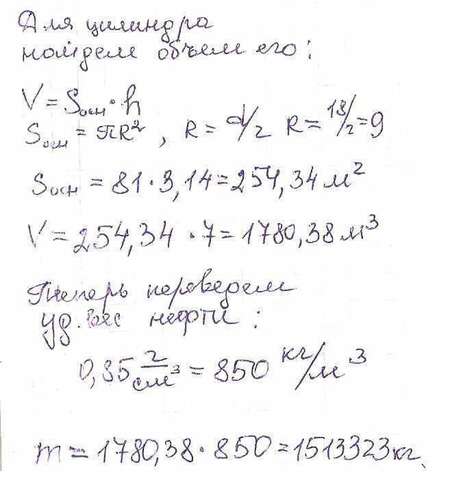 Для цилиндра
найдем объем его:
V = Sосн · h
Sосн = πR², R = d/2 R = 18/2 = 9
Sосн = 81 · 3,14 = 254,34 м²
V = 254,34 · 7 = 1780,38 м³
Теперь переведем
уд. вес нефти:
0,85 г/см³ = 850 кг/м³
m = 1780,38 · 850 = 1513323 кг.